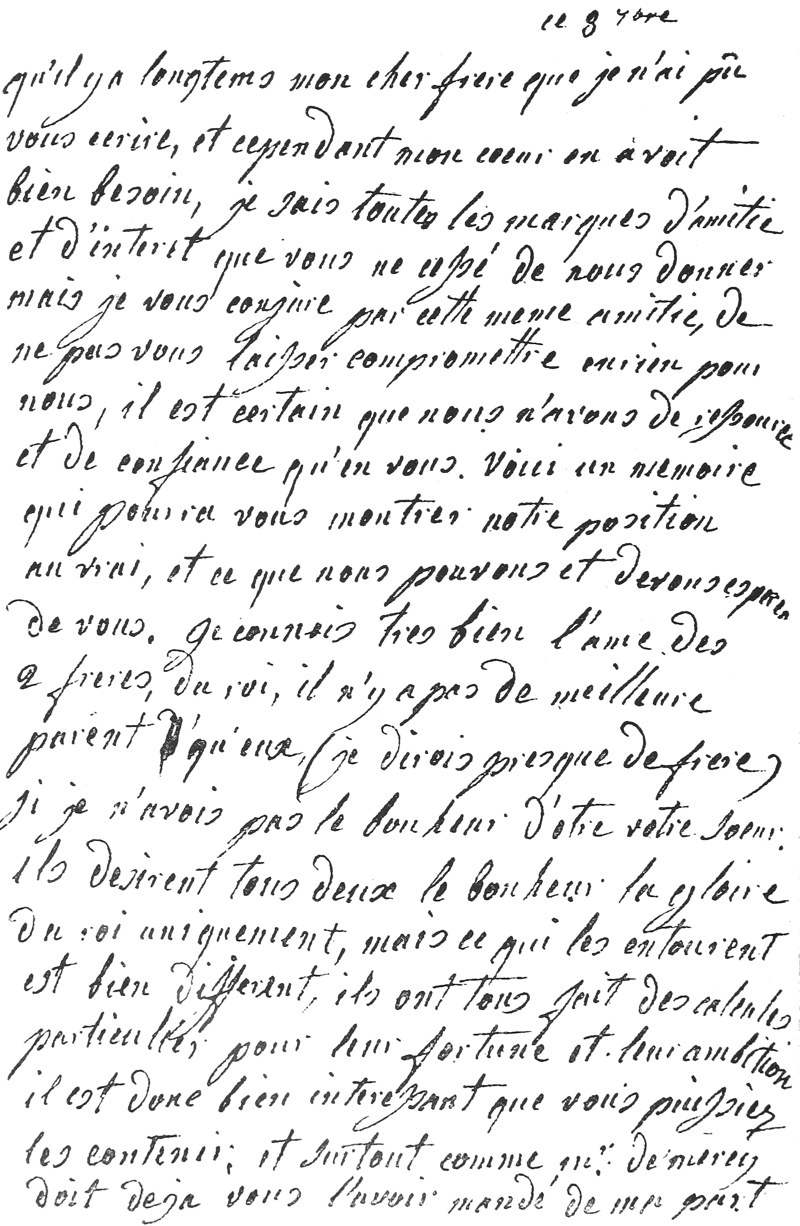 ce 8 7bre
qu'il y a longtems mon cher frere que je n'ai pû
vous ecrire, et cependant mon coeur en avoit
bien besoin, je sais toutes les marques d'amitie
et d'interet que vous ne cessé de nous donner
mais je vous conjure par cette meme amitie, de
ne pas vous laisser compromettre en rien pour
nous, il est certain que nous n'avons de ressource
et de confiance qu'en vous. Voici un memoire
qui pourra vous montrer notre position
au vrai, et ce que nous pouvons et devons esperer
de vous. je connois tres bien l'ame des
2 freres, du roi, il n'y a pas de meilleure
parent qu'eux, (je dirois presque de frere)
si je n'avois pas le bonheur d'etre votre soeur.
ils desirent tous deux le bonheur la gloire
du roi uniquement, mais ce qui les entourent
est bien different, ils ont tous fait des calculs
particulier pour leur fortune et leur ambition
il est donc bien interessant que vous puissiez
les contenir, et surtout comme mr. de mercy
doit deja vous l'avoir mandé de ma part